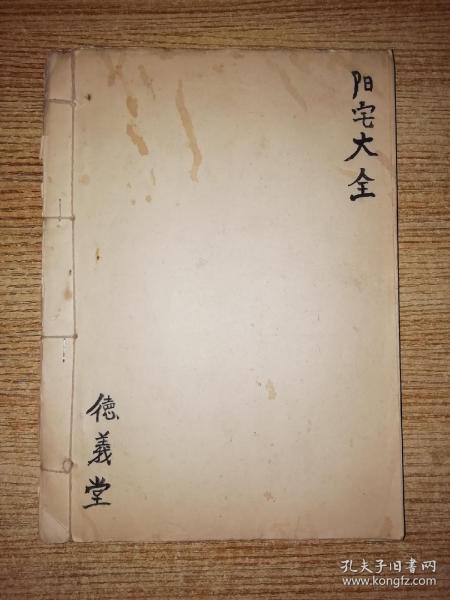 阳宅大全
德義堂
孔夫子旧书网
www.kongfz.com